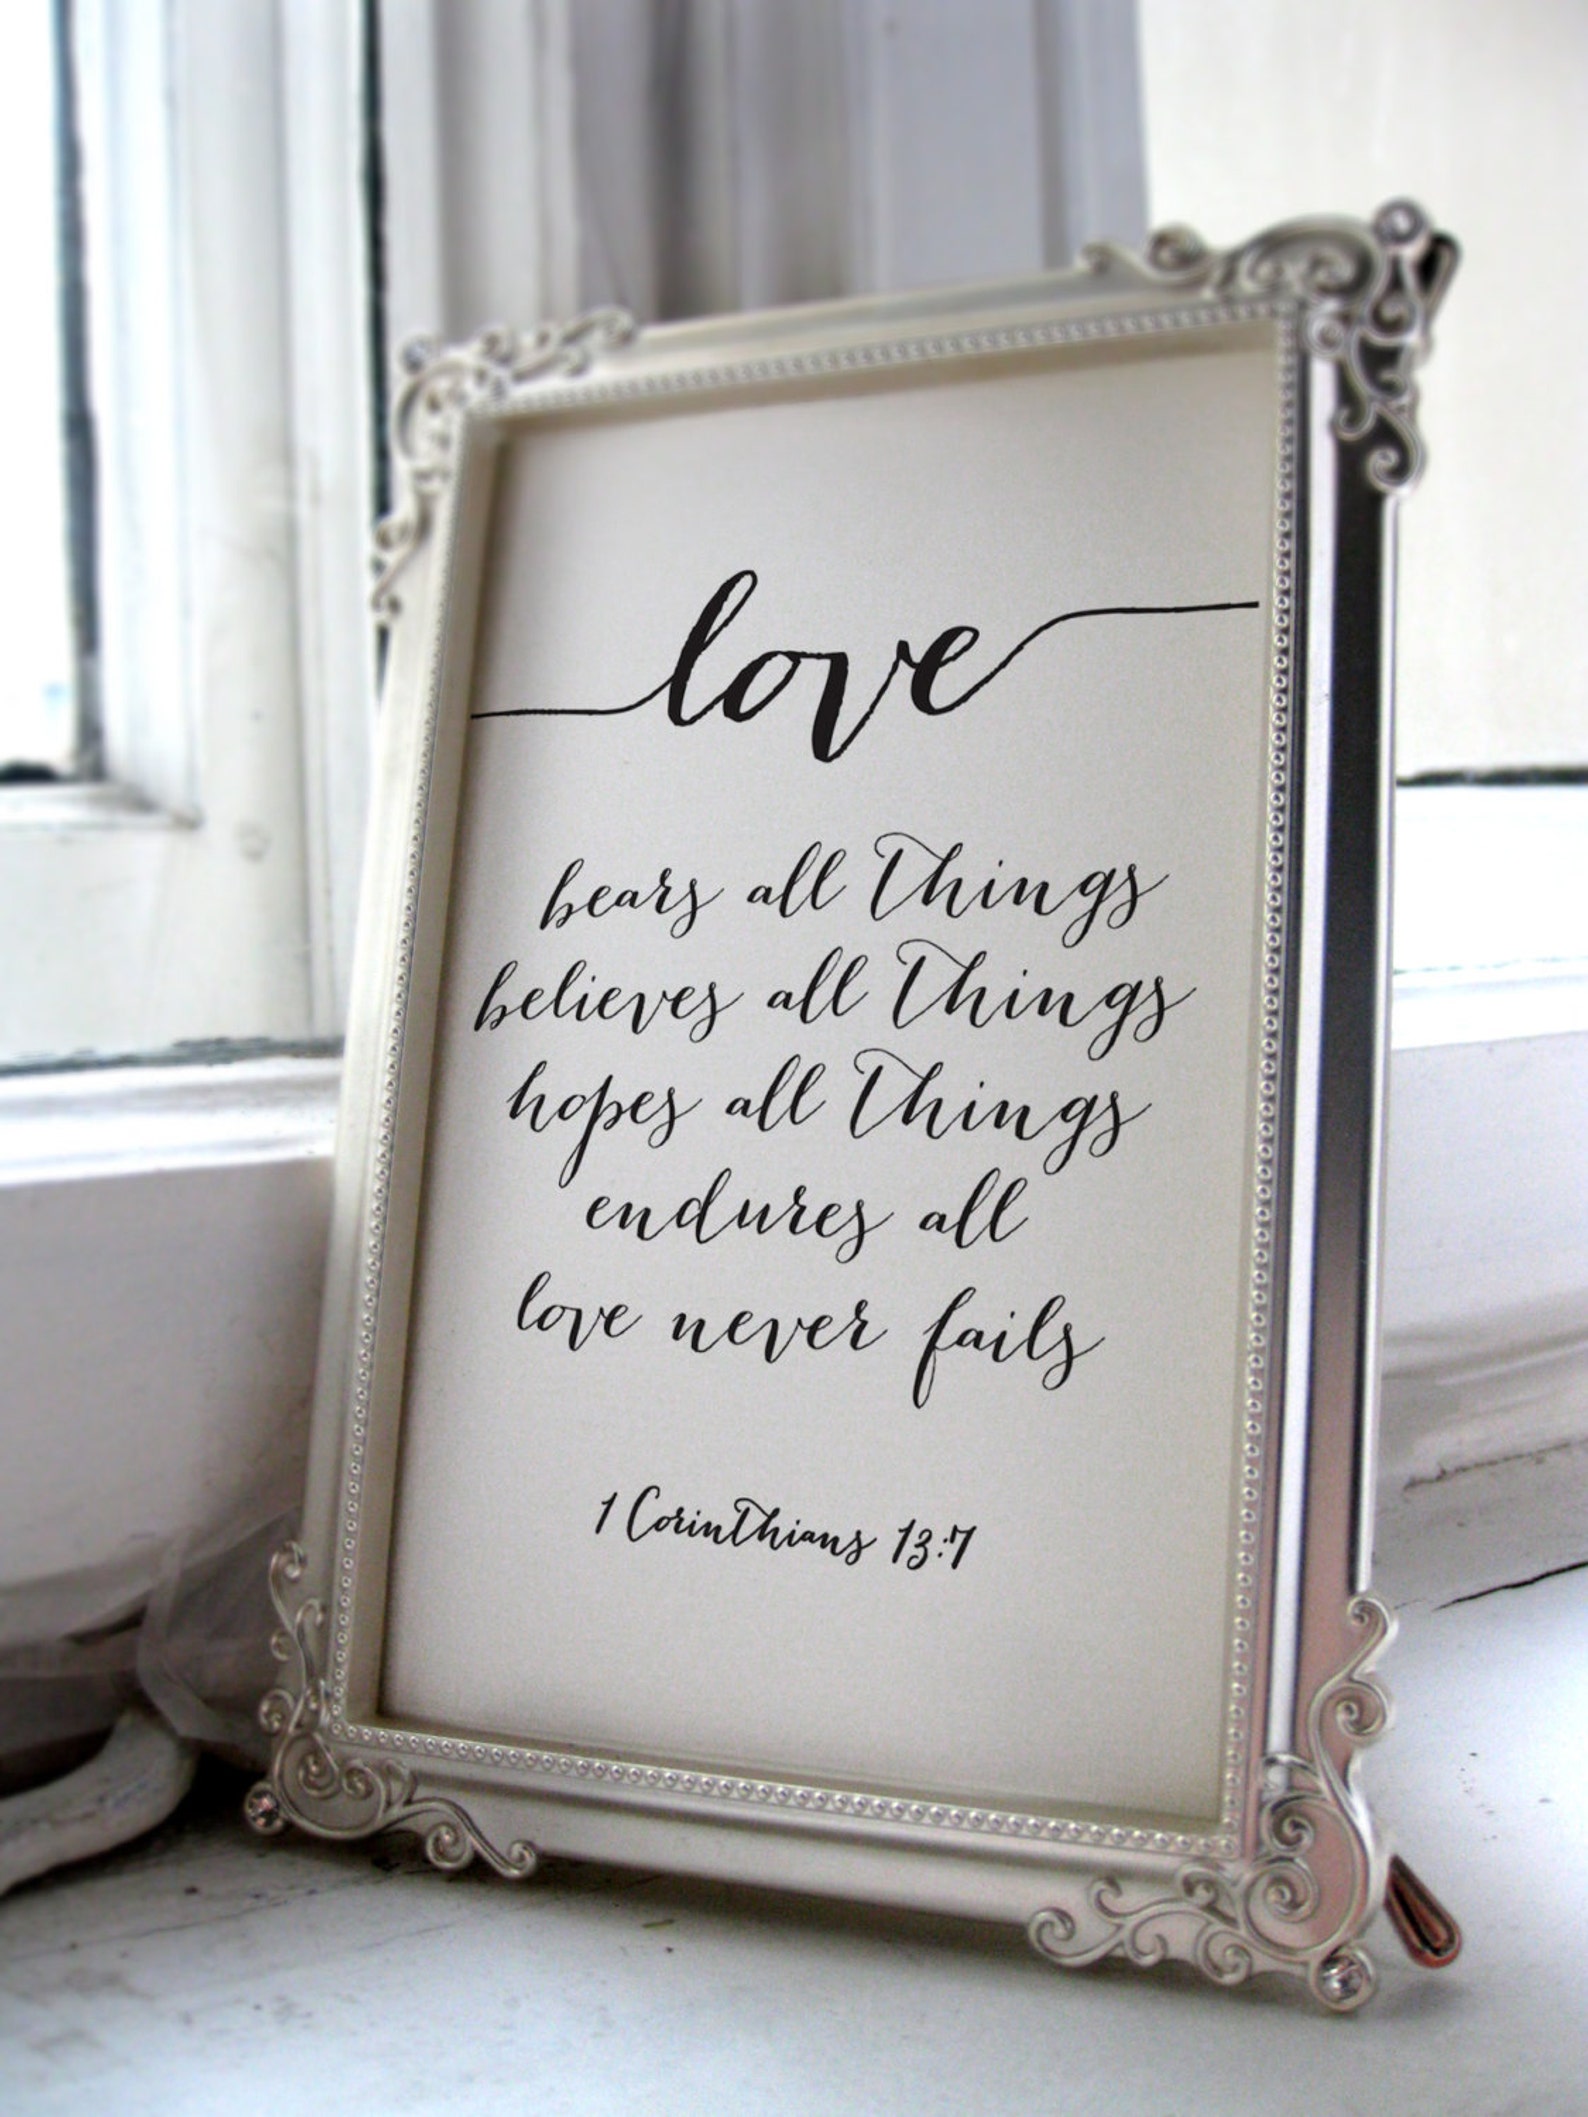 love
bears all things
believes all things
hopes all things
endures all
love never fails
1 Corinthians 13:7